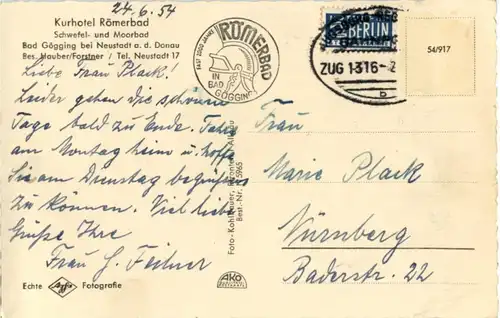 24.6.54
Kurhotel Römerbad
Schwefel- und Moorbad
Bad Gögging bei Neustadt a. d. Donau
Bes. Hauber/Forstner / Tel. Neustadt 17
Liebe Frau Plack!
Leider gehen die schönen
Tage bald zu Ende. Fahre
am Montag heim u. hoffe
Sie am Dienstag begrüßen
zu können. Viel liebe
Grüße Ihre
Frau G.
Echte Agfa Fotografie
FAST 2000 JAHRE
RÖMERBAD
IN
BAD
GÖGGING
NOTOPFER
BERLIN
ZUG 1316
b
54/917
Foto
Best.-Nr. 5965
AKO
Frau
Marie Plack
Nürnberg
Baderstr. 22